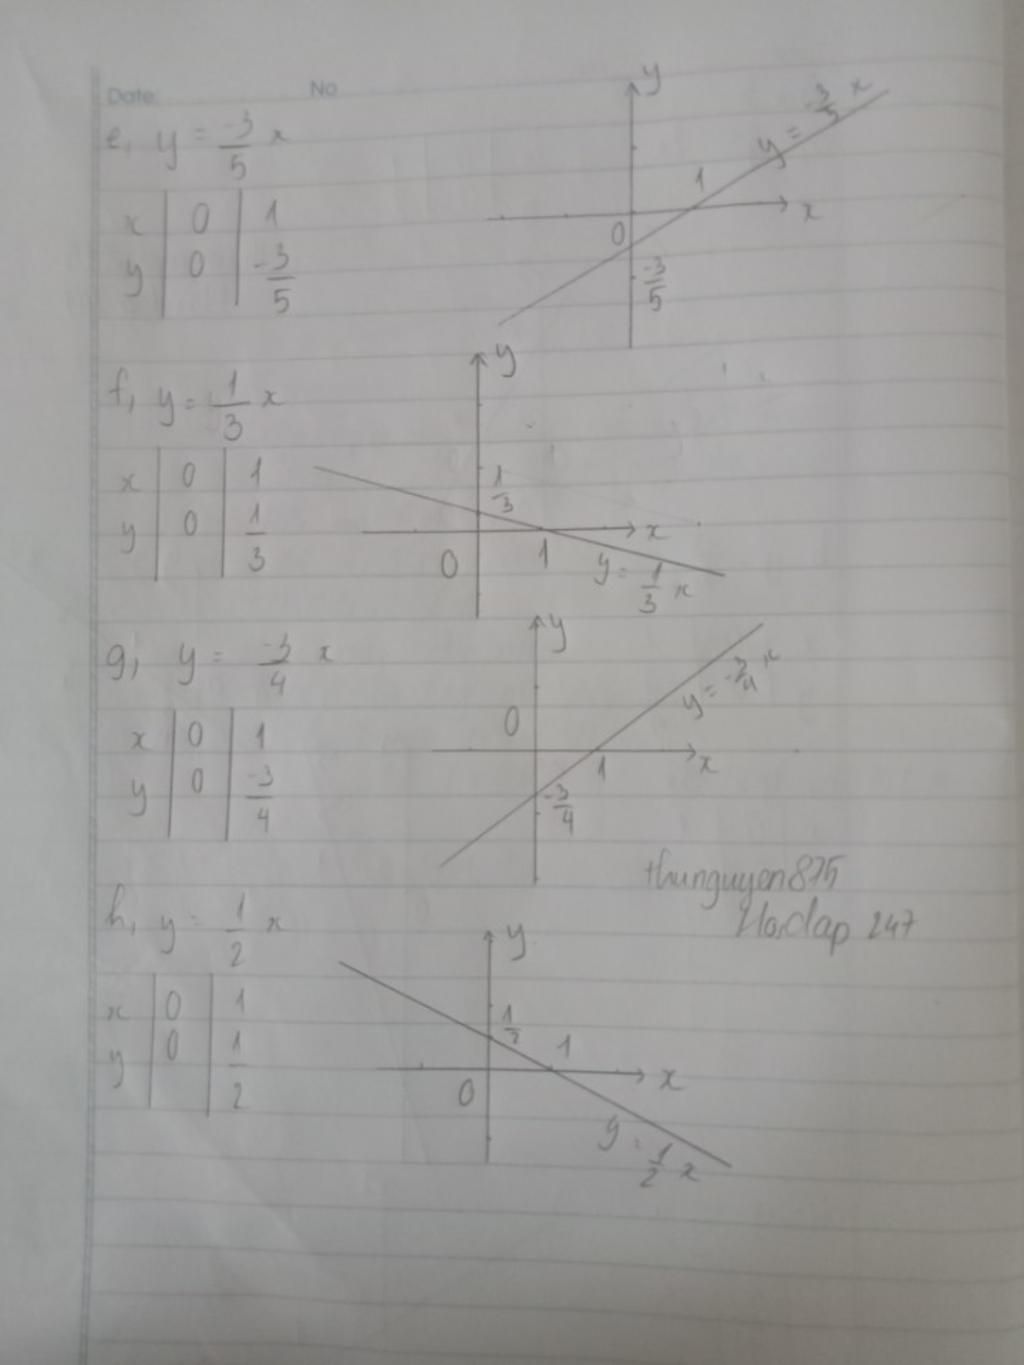 Date No
e, y = -3/5 x
x 0 1
y 0 -3/5
y
y = -3/5 x
1
x
0
-3/5
f, y = 1/3 x
x 0 1
y 0 1/3
y
1/3
x
0 1
y = 1/3 x
g, y = -3/4 x
x 0 1
y 0 -3/4
y
y = -3/4 x
0
1 x
-3/4
thunguyen875
Hoidap 247
h, y = 1/2 x
x 0 1
y 0 1/2
y
1/2
1
x
0
y = 1/2 x